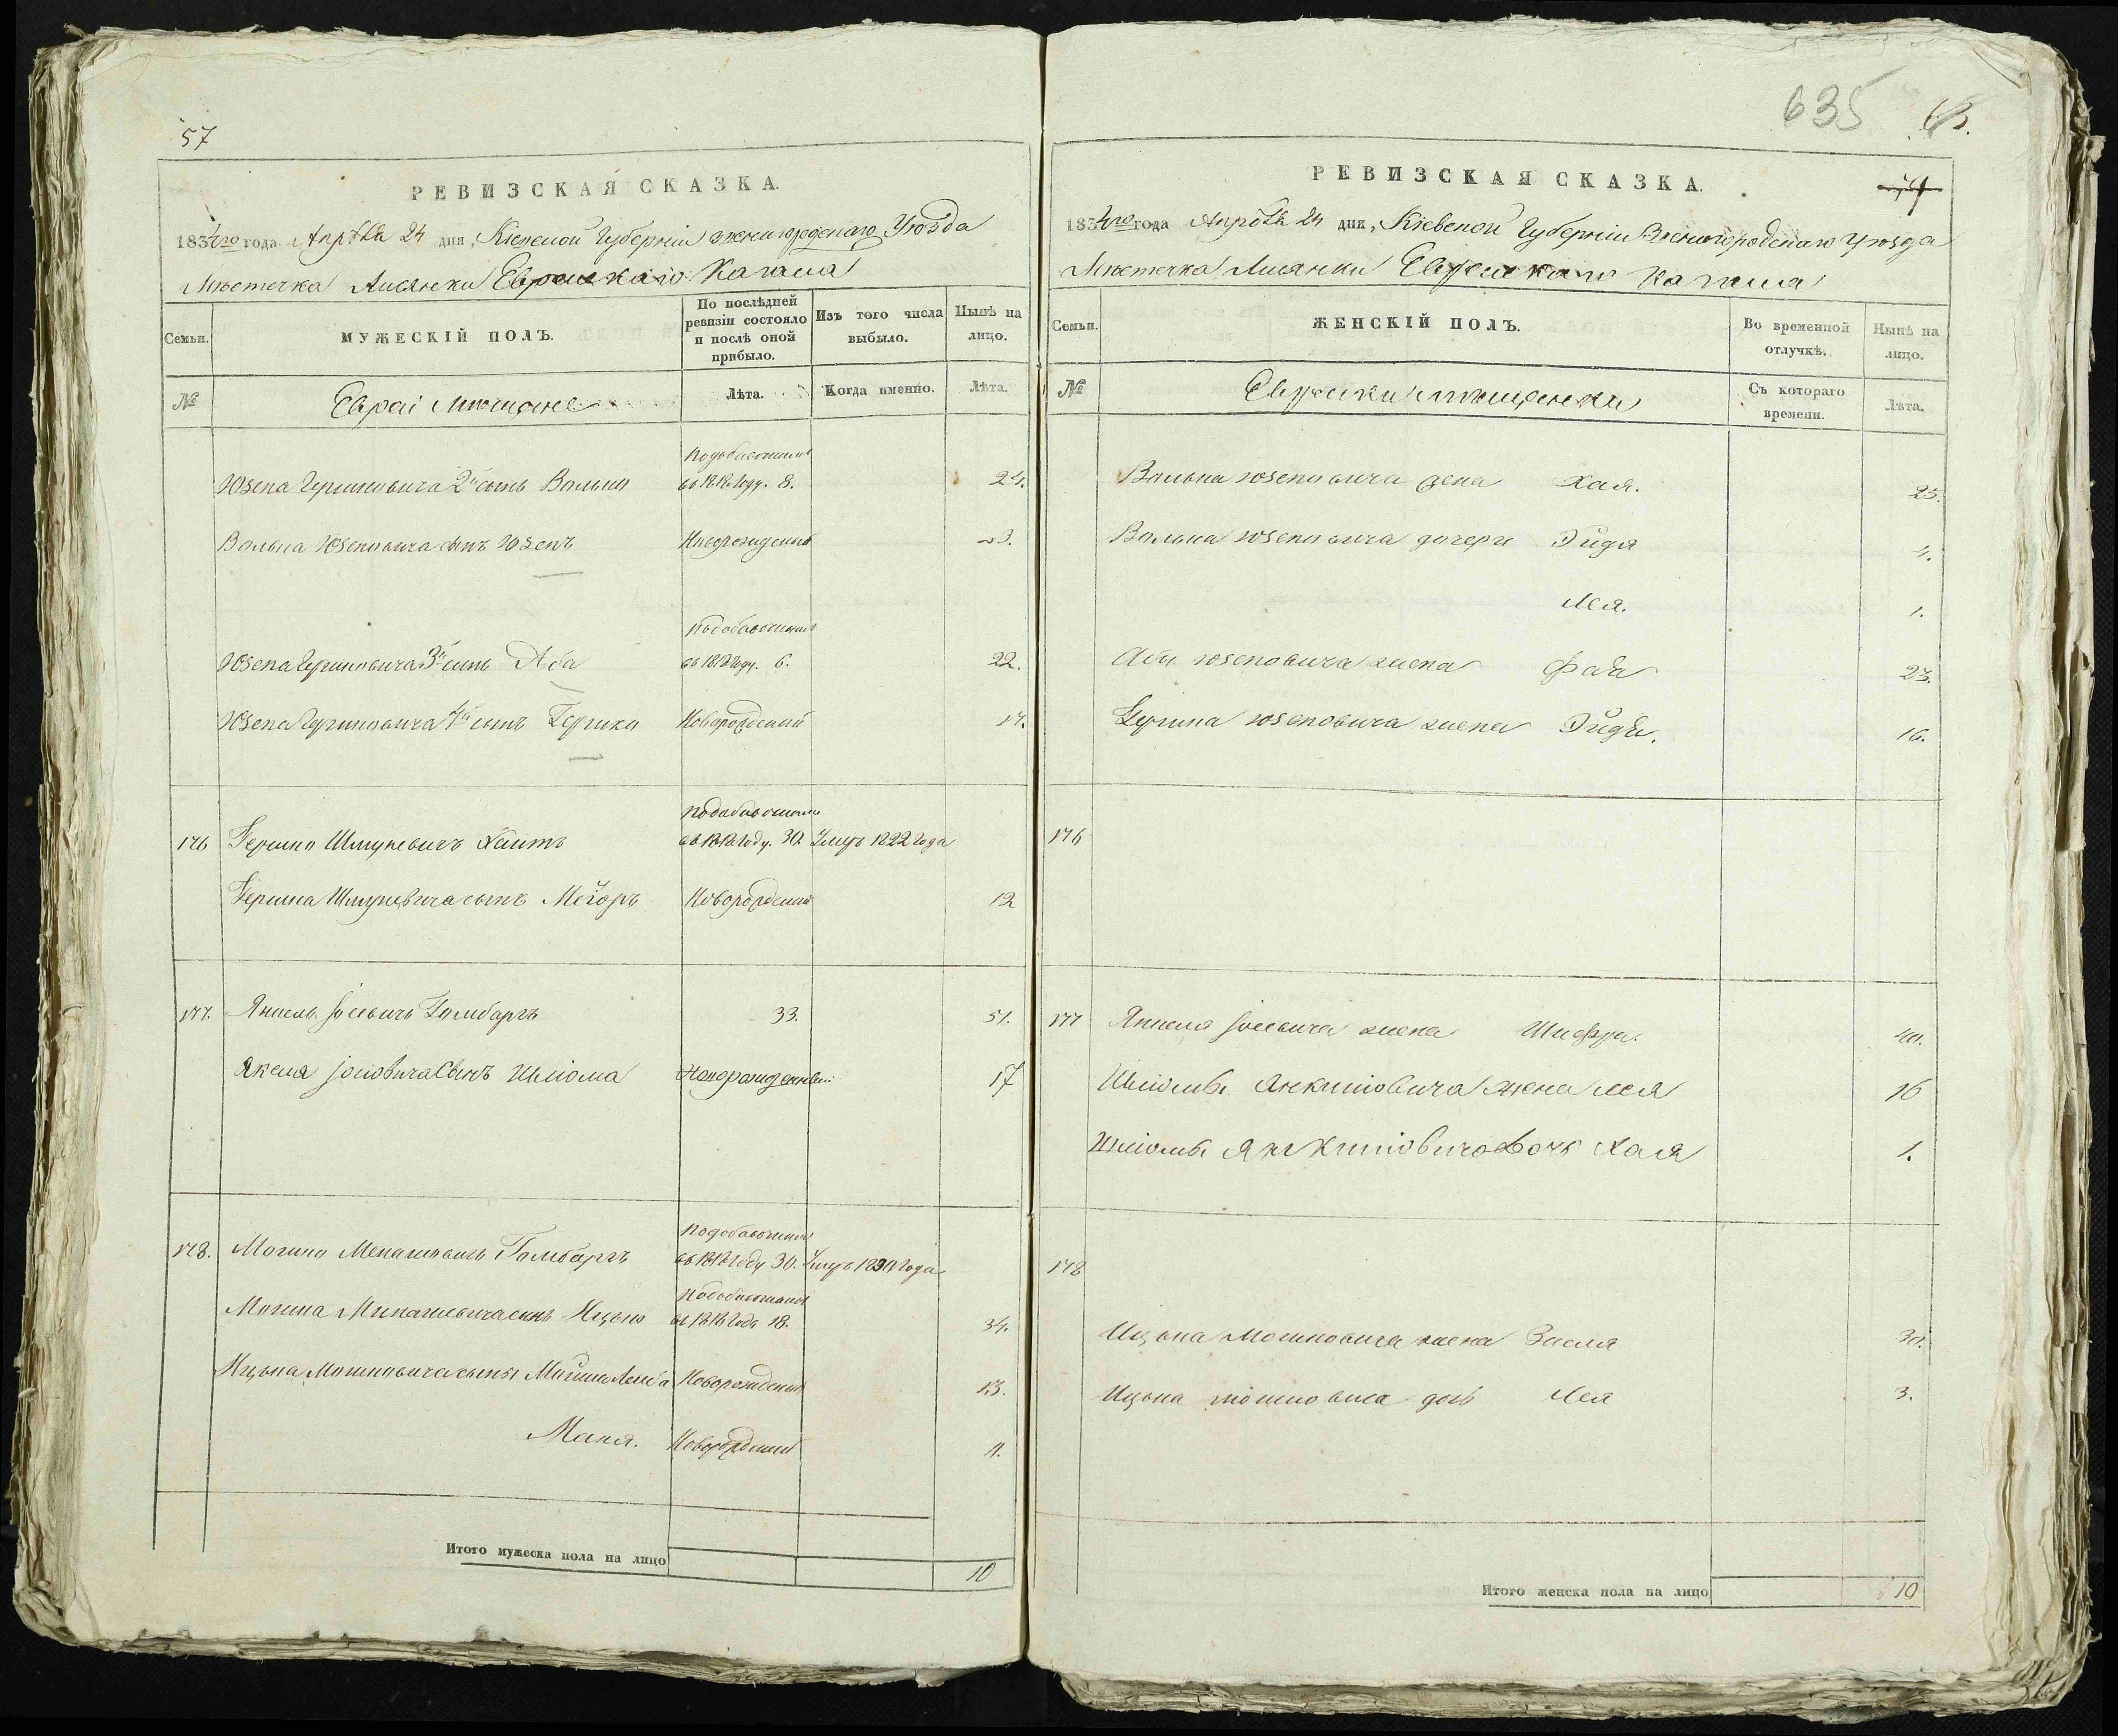 57
РЕВИЗСКАЯ СКАЗКА.
1834го года Апрѣля 24 дня, Кіевской Губерніи Звенигородскаго Уѣзда
Мѣстечка Лисянки Еврейскаго Кагала
Семьи.
МУЖЕСКІЙ ПОЛЪ.
По послѣдней ревизіи состояло и послѣ оной прибыло.
Изъ того числа выбыло.
Нынѣ на лицо.
№
Евреи Мѣщане
Лѣта.
Когда именно.
Лѣта.
Юзепа Гершковича 2й сынъ Волько
въ 1818 году. 8.
24.
Волька Юзеповича сынъ Юзепъ
Новорожденный
3.
Юзепа Гершковича 3й сынъ Аба
въ 1818 году. 6.
22.
Юзепа Гершковича 4й сынъ Гершко
Новорожденный
17.
176
Гершко Шмулевичъ
въ 1818 году. 30.
Умеръ 1822 года
Гершка Шмулевича сынъ Мейоръ
Новорожденный
12
177.
Янкель Іосевичъ Гамбаргъ
33.
51.
Якеля Іосіовича Сынъ Шліома
Новорожденный
17
178.
Мошко Менашовичъ Гамбаргъ
въ 1818 году 30.
Умеръ 1830 Года
Мошка Минашевича сынъ Ицько
въ 1818 Году 18.
34.
Ицька Мошковича сыны Мошка Лейба
Новорожденный
13.
Маня.
Новорожденный
11.
Итого мужеска пола на лицо
10
635
РЕВИЗСКАЯ СКАЗКА.
1834го года Апрѣля 24 дня, Кіевской Губерніи Звенигородскаго Уѣзда
Мѣстечка Лисянки Еврейскаго Кагала
Семьи.
ЖЕНСКІЙ ПОЛЪ.
Во временной отлучкѣ.
Нынѣ на лицо.
№
Еврейки мѣщанки
Съ котораго времени.
Лѣта.
Волька Юзеповича жена Хая.
25.
Волька Юзеповича дочери Эйдя
4.
Лея.
1.
Абы Юзеповича жена Фейга
23.
Гершка Юзеповича жена Эйдя.
16.
176
177
Янкеля Іосевича жена Шифра.
40.
Шліомы Янкиліовича жена лея
16
Шліомы Янкиліовича дочь Хая
1.
178
Ицька Мошковича жена Засля
30.
Ицька мошковича дочь Лея
3.
Итого женска пола на лицо
10